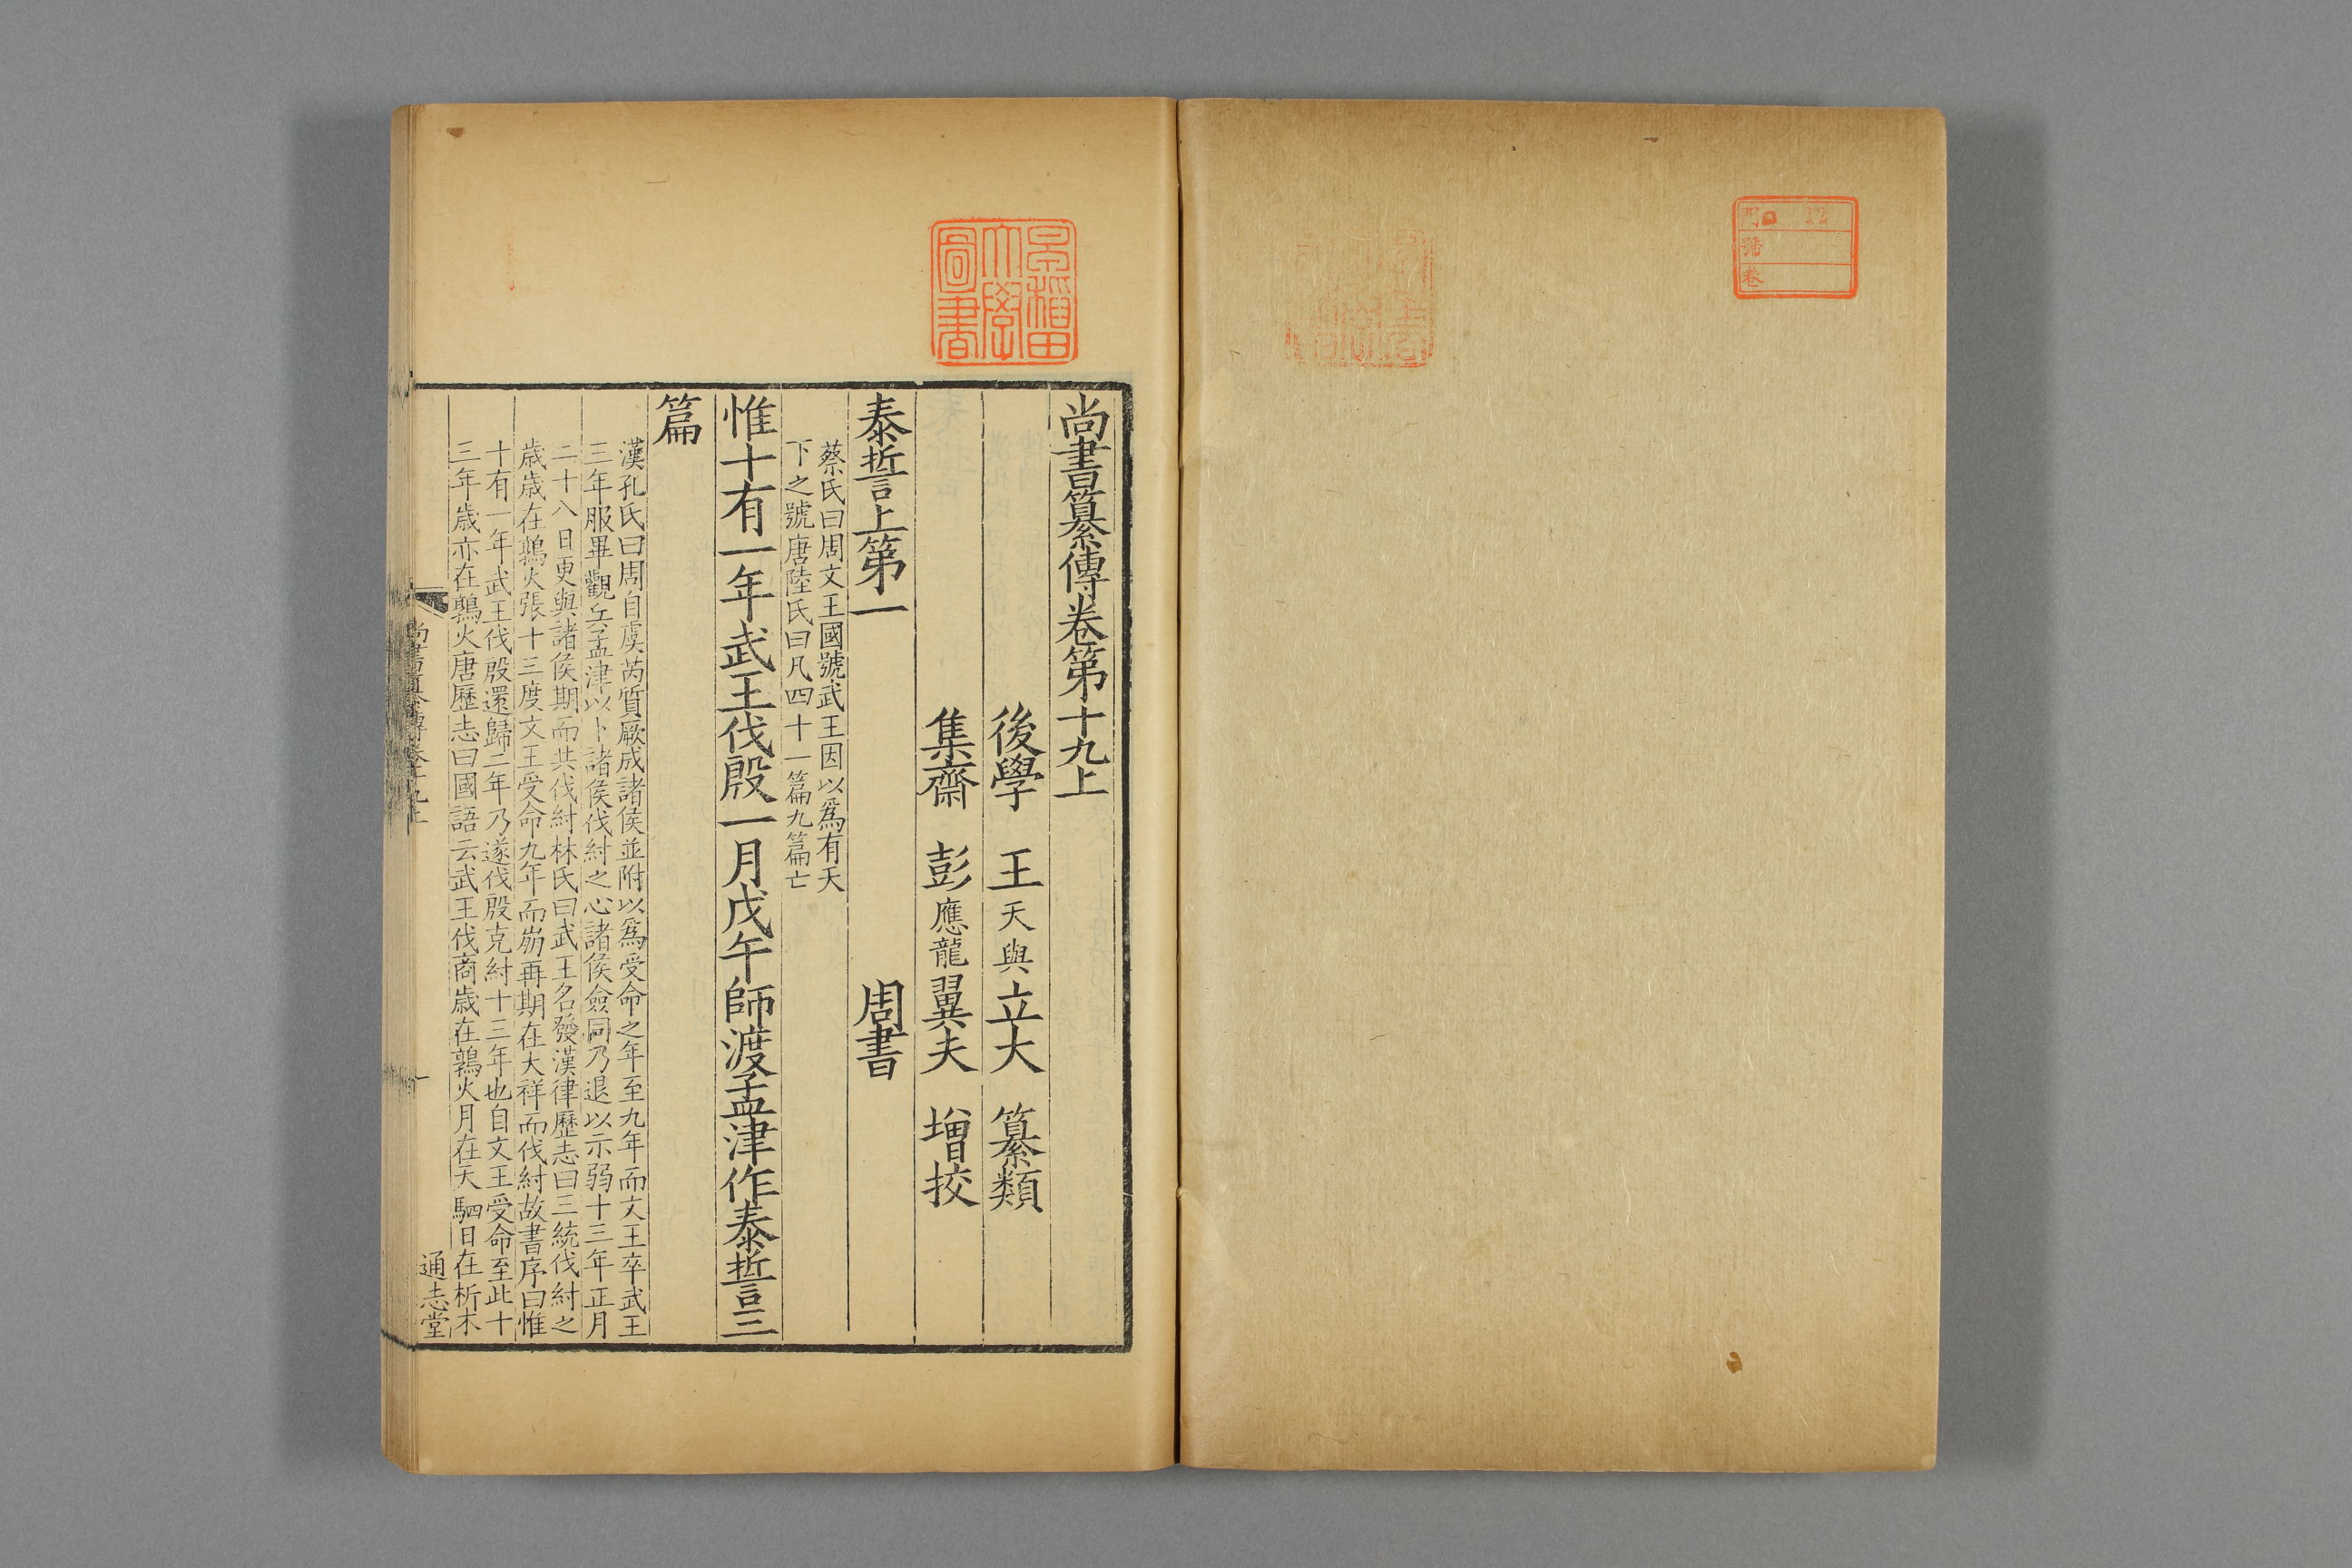 門 12
號
卷
早稲田大學圖書
尚書纂傳卷第十九上
後學 王天與立大 纂類
集齋 彭應龍翼夫 增挍
泰誓上第一 周書
蔡氏曰周文王國號武王因以爲有天
下之號唐陸氏曰凡四十一篇九篇亡
惟十有一年武王伐殷一月戊午師渡孟津作泰誓三
篇
漢孔氏曰周自虞芮質厥成諸侯並附以爲受命之年至九年而文王卒武王
三年服畢觀兵孟津以卜諸侯伐紂之心諸侯僉同乃退以示弱十三年正月
二十八日更與諸侯期而共伐紂林氏曰武王名發漢律歷志曰三統伐紂之
歳歳在鶉火張十三度文王受命九年而崩再期在大祥而伐紂故書序曰惟
十有一年武王伐殷還歸二年乃遂伐殷克紂十三年也自文王受命至此十
三年歳亦在鶉火唐歷志曰國語云武王伐商歳在鶉火月在天駟日在析木
尚書纂傳卷十九上
一
通志堂